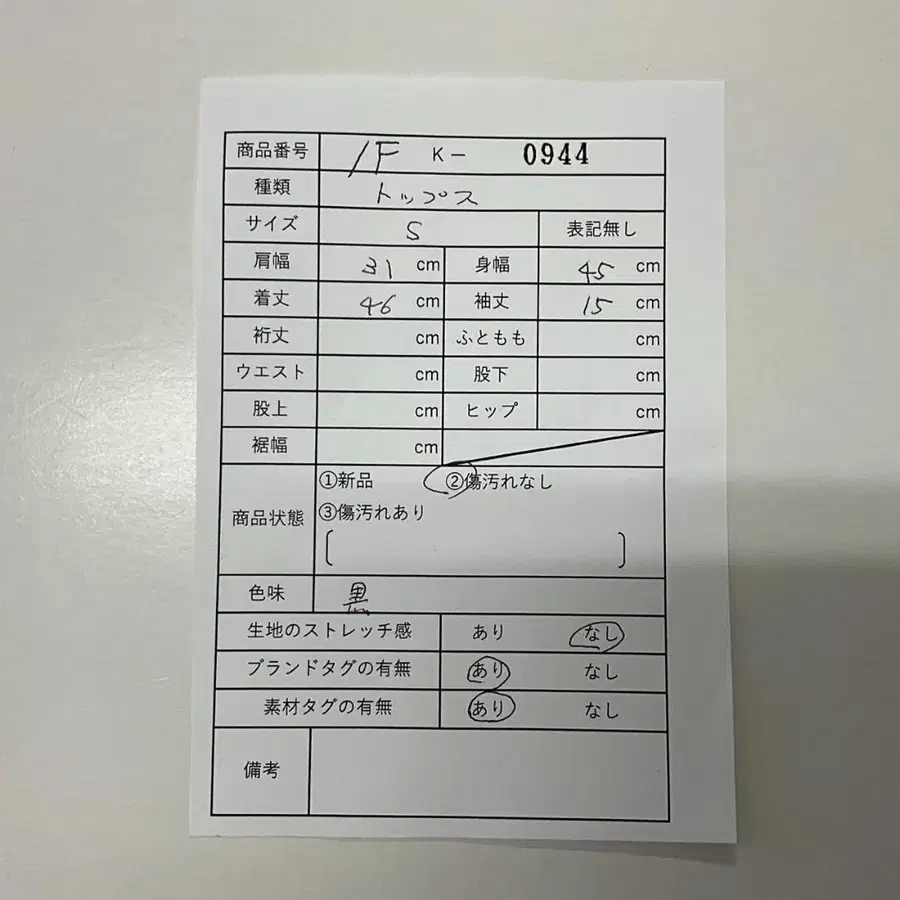 商品番号 1F K- 0944
種類 トップス
サイズ S 表記無し
肩幅 31 cm 身幅 45 cm
着丈 46 cm 袖丈 15 cm
裄丈 cm ふともも cm
ウエスト cm 股下 cm
股上 cm ヒップ cm
裾幅 cm
商品状態 ①新品 ②傷汚れなし
③傷汚れあり
[ ]
色味 黒
生地のストレッチ感 あり なし
ブランドタグの有無 あり なし
素材タグの有無 あり なし
備考